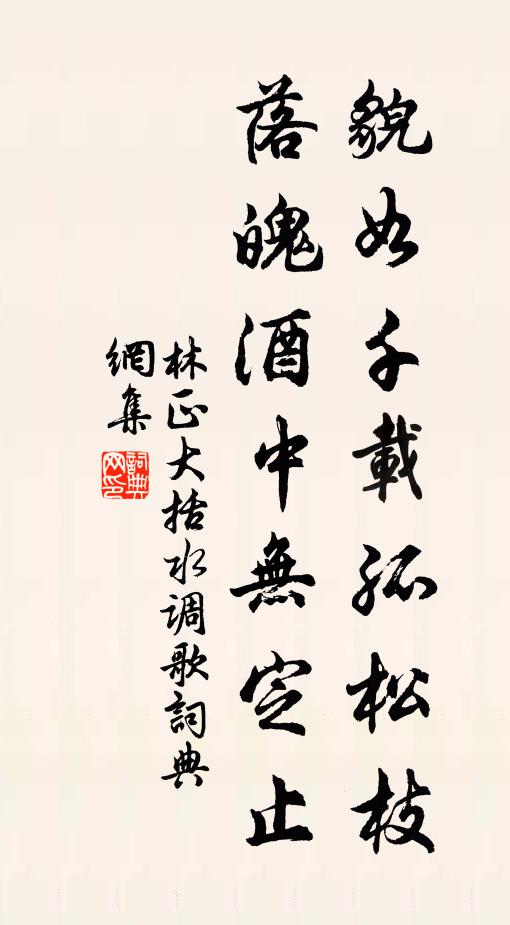 貌如千載孤松枝
落魄酒中無定止
林正大括水调歌詞典
網集
詞典網印